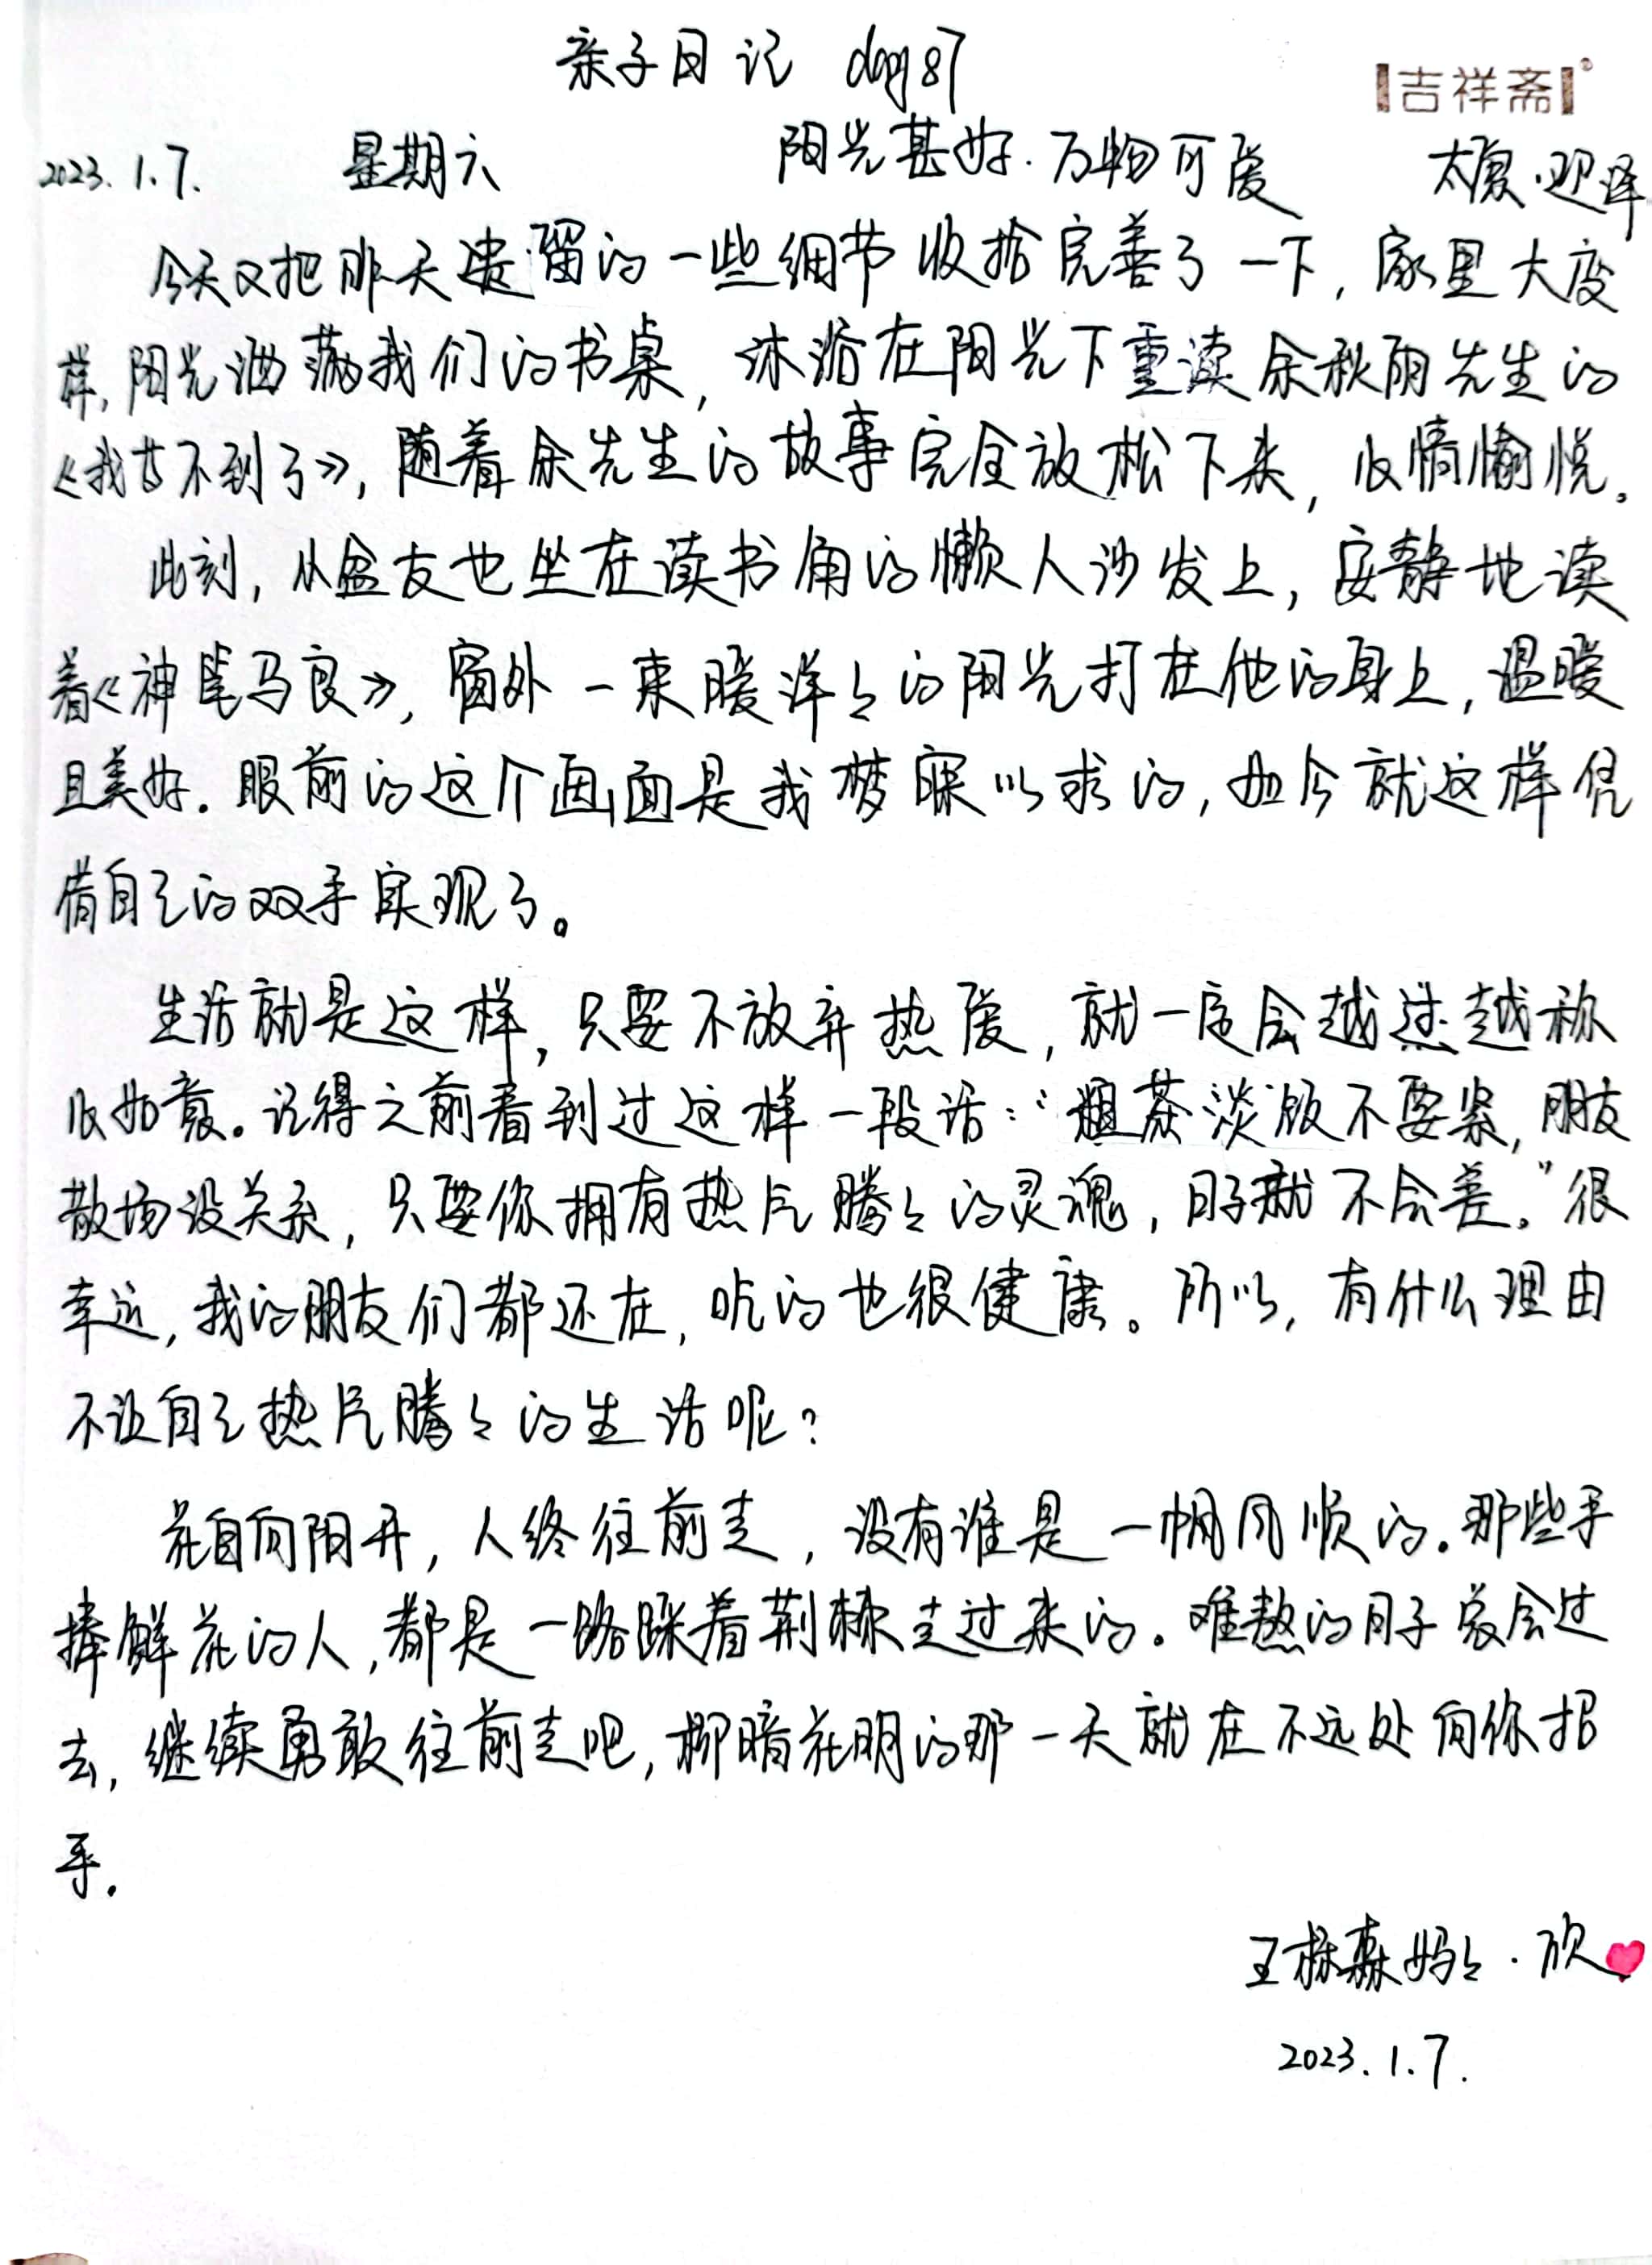 亲子日记 day87
吉祥斋
2023.1.7. 星期六 阳光甚好.万物可爱 太康·观泽
今天又把昨天遗留的一些细节收拾完善了一下,家里大变
样,阳光洒满我们的书桌,沐浴在阳光下重读余秋雨先生的
《我等不到了》,随着余先生的故事完全放松下来,心情愉悦。
此刻,小盆友也坐在读书角的懒人沙发上,安静地读
着《神笔马良》,窗外一束暖洋々的阳光打在他的身上,温暖
且美好.眼前的这个画面是我梦寐以求的,如今就这样凭
借自己的双手实现了。
生活就是这样,只要不放弃热爱,就一定会越过越称
心如意。记得之前看到过这样一段话:“粗茶淡饭不要紧,朋友
散场没关系,只要你拥有热气腾々的灵魂,日子就不会差。”很
幸运,我的朋友们都还在,吃的也很健康。所以,有什么理由
不让自己热气腾々的生活呢?
花自向阳开,人终往前走,没有谁是一帆风顺的.那些手
捧鲜花的人,都是一路踩着荆棘走过来的。难熬的日子总会过
去,继续勇敢往前走吧,柳暗花明的那一天就在不远处向你招
手.
王栎森妈々·欣
2023.1.7.